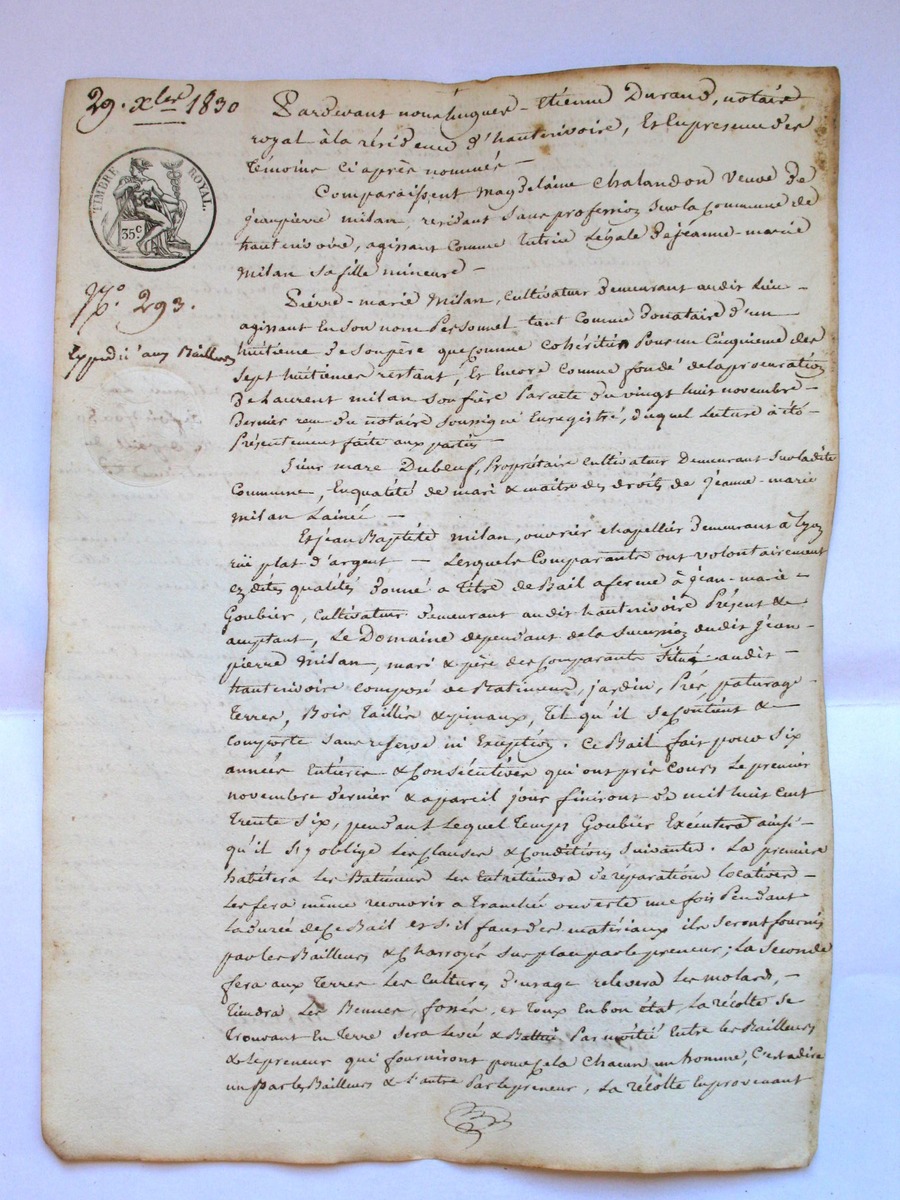 29. xbre 1830
TIMBRE ROYAL.
35c
No. 293.
Expedié aux Bailleurs
Pardevant nous Hugues-Etienne Durand, notaire
royal à la résidence d'hauterivoire, Et En presence des
témoins ci après nommés -
Comparaissent Magdelaine Chalandon veuve De
jean pierre milan, residant sans profession sur la commune de
hauterivoire, agissant Comme tutrice Légale de jeanne-marie
milan sa fille mineure -
Pierre-marie milan, cultivateur demeurant audit Lieu -
agissant En son nom Personnel tant comme donataire d'un
huitieme de son père que comme cohéritier Pour un Cinquieme des
sept huitiemes restant, Et Encore comme fondé de la procuration
De Laurent milan son frère Par acte du vingt huit novembre -
Dernier reçu du notaire soussigné Enregistré, duquel Lecture a été -
Présentement faite aux parties -
Sieur marc Dubeuf, Propriétaire cultivateur Demeurant sur ladite
Commune, En qualité de mari & maitre des droits de jeanne-marie
milan L'ainée -
Et jean Baptiste milan, ouvrier chapellier demeurant à Lyon
rue plat d'argent - Lesquels Comparants ont volontairement
ez dites qualités donné a titre de Bail a ferme à jean-marie -
Goubier, cultivateur demeurant audit hauterivoire Présent &
acceptant, Le Domaine dependant de la succession dudit jean-
pierre milan, mari & père des Comparants situé audit -
hauterivoire composé de Batimens, jardin, Prés, paturage
terres, Bois taillis & pinaux, tel qu'il se contient &
comporte sans reserve ni Exception. Ce Bail fait pour six
années Entières & Consécutives qui ont pris Cours le premier
novembre dernier & a pareil jour finiront de mil huit cent
trente six, pendant Lequel temps Goubier Exécutera ainsi -
qu'il s'y oblige Les clauses & conditions suivantes. La premiere
habitera Les Batimens Les Entretiendra de réparations locatives -
Les fera même recouvrir a tranchée ouverte une fois Pendant
La durée de ce Bail et s'il faut des matériaux ils seront fournis
par les Bailleurs & Charroyés sur place par le preneur; La seconde
fera aux terres Les Cultures d'usage relevera Les molards, -
tiendra Les Bennes, fossés, et toux En bon état, La récolte se
trouvant En terre sera Levée & Battue Par moitié Entre les Bailleurs
& le preneur qui fourniront pour cela Chacun un homme, c'est adire
un Par les Bailleurs & l'autre Par le preneur, La récolte En provenant